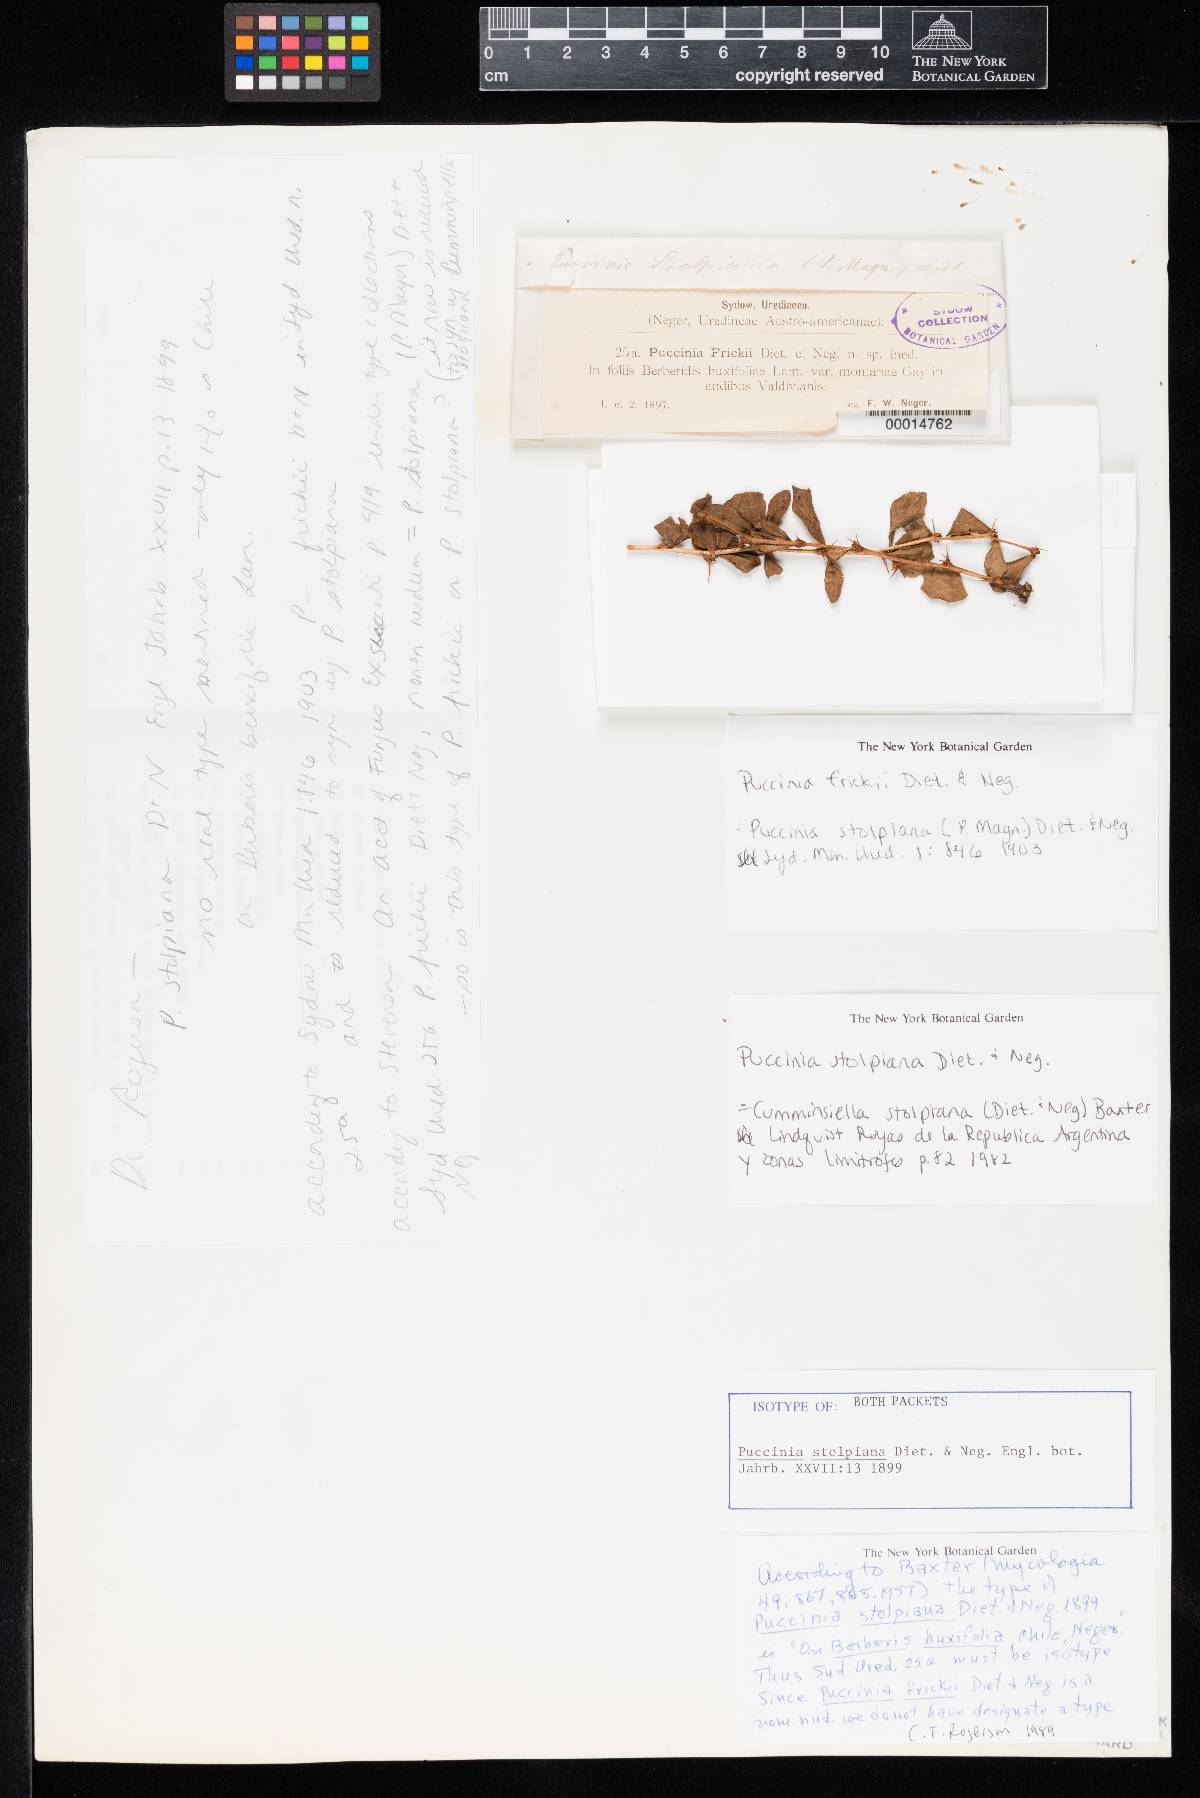 0 1 2 3 4 5 6 7 8 9 10
cm
copyright reserved
THE NEW YORK
BOTANICAL GARDEN
= Puccinia Stolpiana (P. Magn.) Diet.
Sydow, Uredineen.
(Neger, Uredineae Austro-americanae).
25a. Puccinia Frickii Diet. et Neg. n. sp. ined.
In foliis Berberidis buxifoliae Lam. var. montanae Gay in
andibus Valdivianis.
1. et 2. 1897.
leg. F. W. Neger.
SYDOW
COLLECTION
BOTANICAL GARDEN
00014762
Dr. Rogerson —
P. stolpiana D+N Engl Jahrb XXVII p. 13 1899
no real type mentioned - only info is Chile
on Berberis buxifolia Lam.
according to Sydow Mn Ured 1:846 1903 P- frickii D+N in Syd Ured. n.
25a and is reduced to syn w/ P. stolpiana
according to Stevenson An Acct of Fungus Exsiccati p. 419 under type collections
Syd Ured. 25a P. frickii Diet & Neg, nomen nudum = P. stolpiana (P. Magn) Diet +
Neg
— so is this type of P. frickii or P stolpiana? (it now is reduced
to syn w/ Cumminsiella
stolpiana)
The New York Botanical Garden
Puccinia frickii Diet. & Neg.
= Puccinia stolpiana (P. Magn.) Diet. & Neg.
Syd. Mon. Ured. 1: 846 1903
The New York Botanical Garden
Puccinia stolpiana Diet. & Neg.
= Cumminsiella stolpiana (Diet. & Neg) Baxter
Lindquist Royas de la Republica Argentina
y zonas limitrofes p. 82 1982
ISOTYPE OF: BOTH PACKETS
Puccinia stolpiana Diet. & Neg. Engl. bot.
Jahrb. XXVII:13 1899
The New York Botanical Garden
According to Baxter (Mycologia
49: 867, 868. 1957) the type of
Puccinia stolpiana Diet. & Neg. 1899
is "On Berberis buxifolia Chile, Neger."
Thus Syd. Ured. 25a must be isotype.
Since Puccinia frickii Diet. & Neg is a
nom. nud. we do not have designate a type
C. T. Rogerson 1989